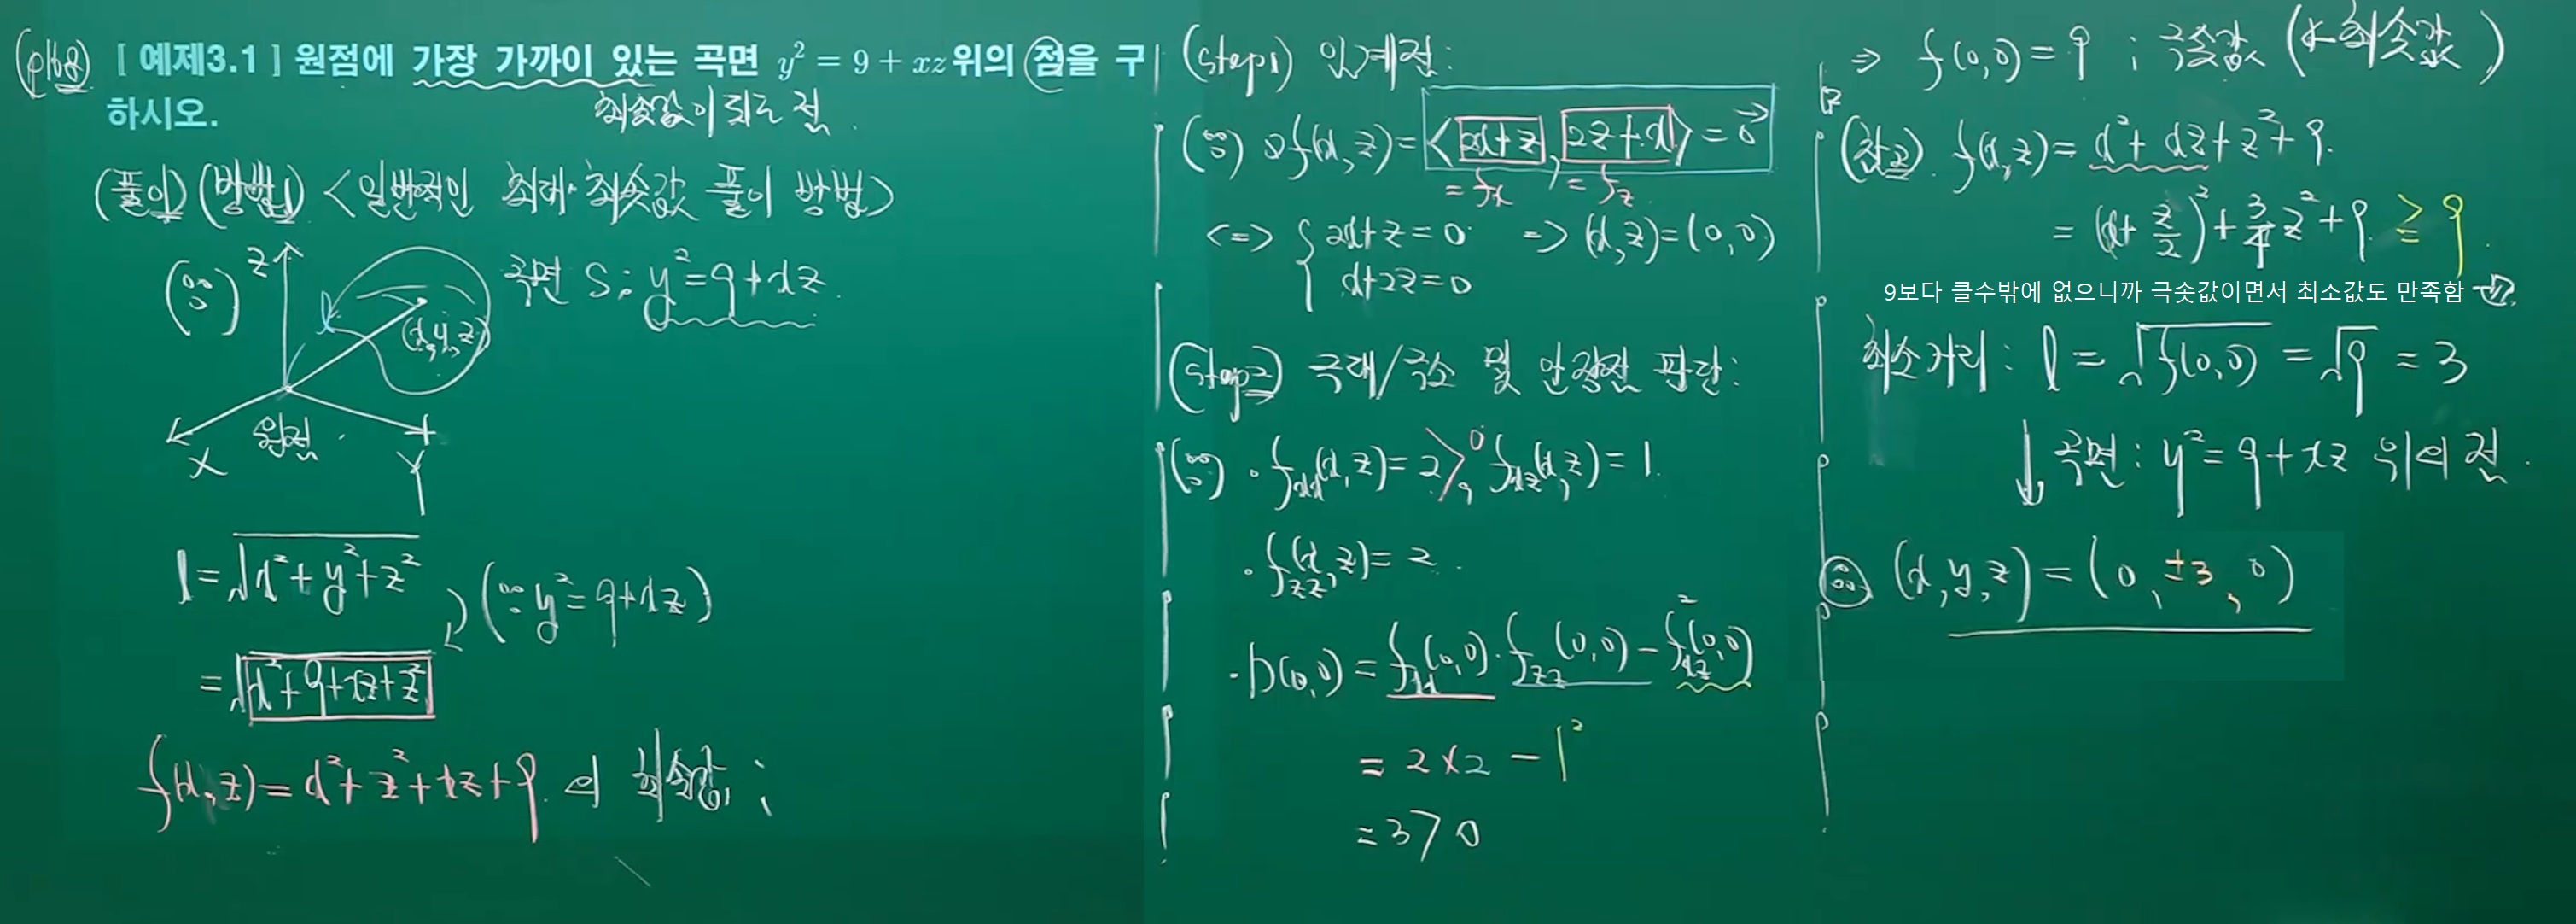 (p168) [ 예제3.1 ] 원점에 가장 가까이 있는 곡면 y² = 9 + xz 위의 점을 구
하시오.
최솟값이 되는 점.
(풀이) (방법1) <일반적인 최대·최솟값 풀이 방법>
(∵) 곡면 S: y²=9+xz.
Z
l
(x,y,z)
원점.
X
Y
l=√(x²+y²+z²)
(∵ y²=9+xz)
=√(x²+9+xz+z²)
f(x,z)=x²+z²+xz+9 의 최솟값;
(step1) 임계점:
(∵) ∇f(x,z)=<2x+z, 2z+x>=0⃗
=fx, =fz
<=> { 2x+z=0 => (x,z)=(0,0)
x+2z=0
(step2) 극대/극소 및 안장점 판단:
(∵) · fxx(x,z)=2>0, fxz(x,z)=1.
· fzz(x,z)=2.
· D(0,0)=fxx(0,0)·fzz(0,0)-fxz²(0,0)
= 2×2 - 1²
=3>0
⇒ f(0,0)=9 ; 극솟값 (& 최솟값)
(참고) f(x,z)=x²+xz+z²+9.
= (x+z/2)²+3/4 z²+9 ≥ 9.
9보다 클수밖에 없으니까 극솟값이면서 최소값도 만족함
최소거리: l = √f(0,0) = √9 = 3
↓ 곡면: y²=9+xz 위의 점.
∴ (x,y,z)=(0,±3,0)